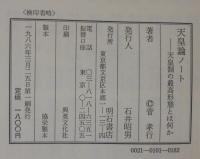 〈検印省略〉
天皇論ノート
天皇制の最高形態とは何か
著者 ©菅孝行
発行人 石井昭男
発行所 明石書店
東京都文京区本郷
電話 〇三-八一八-三三五一
振替口座 東京
印刷 興英文化社
製本 協栄製本
一九八六年三月二五日第一刷発行
定価 一八〇〇円
0021-0101-0182